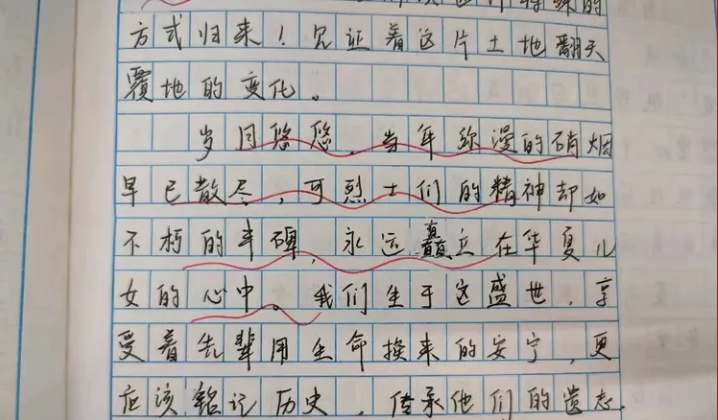 的
方式归来！见证着这片土地翻天
覆地的变化。
岁月悠悠，当年弥漫的硝烟
早已散尽，可烈士们的精神却如
不朽的丰碑，永远矗立在华夏儿
女的心中。我们生于这盛世，享
受着先辈用生命换来的安宁，更
应该铭记历史，传承他们的遗志